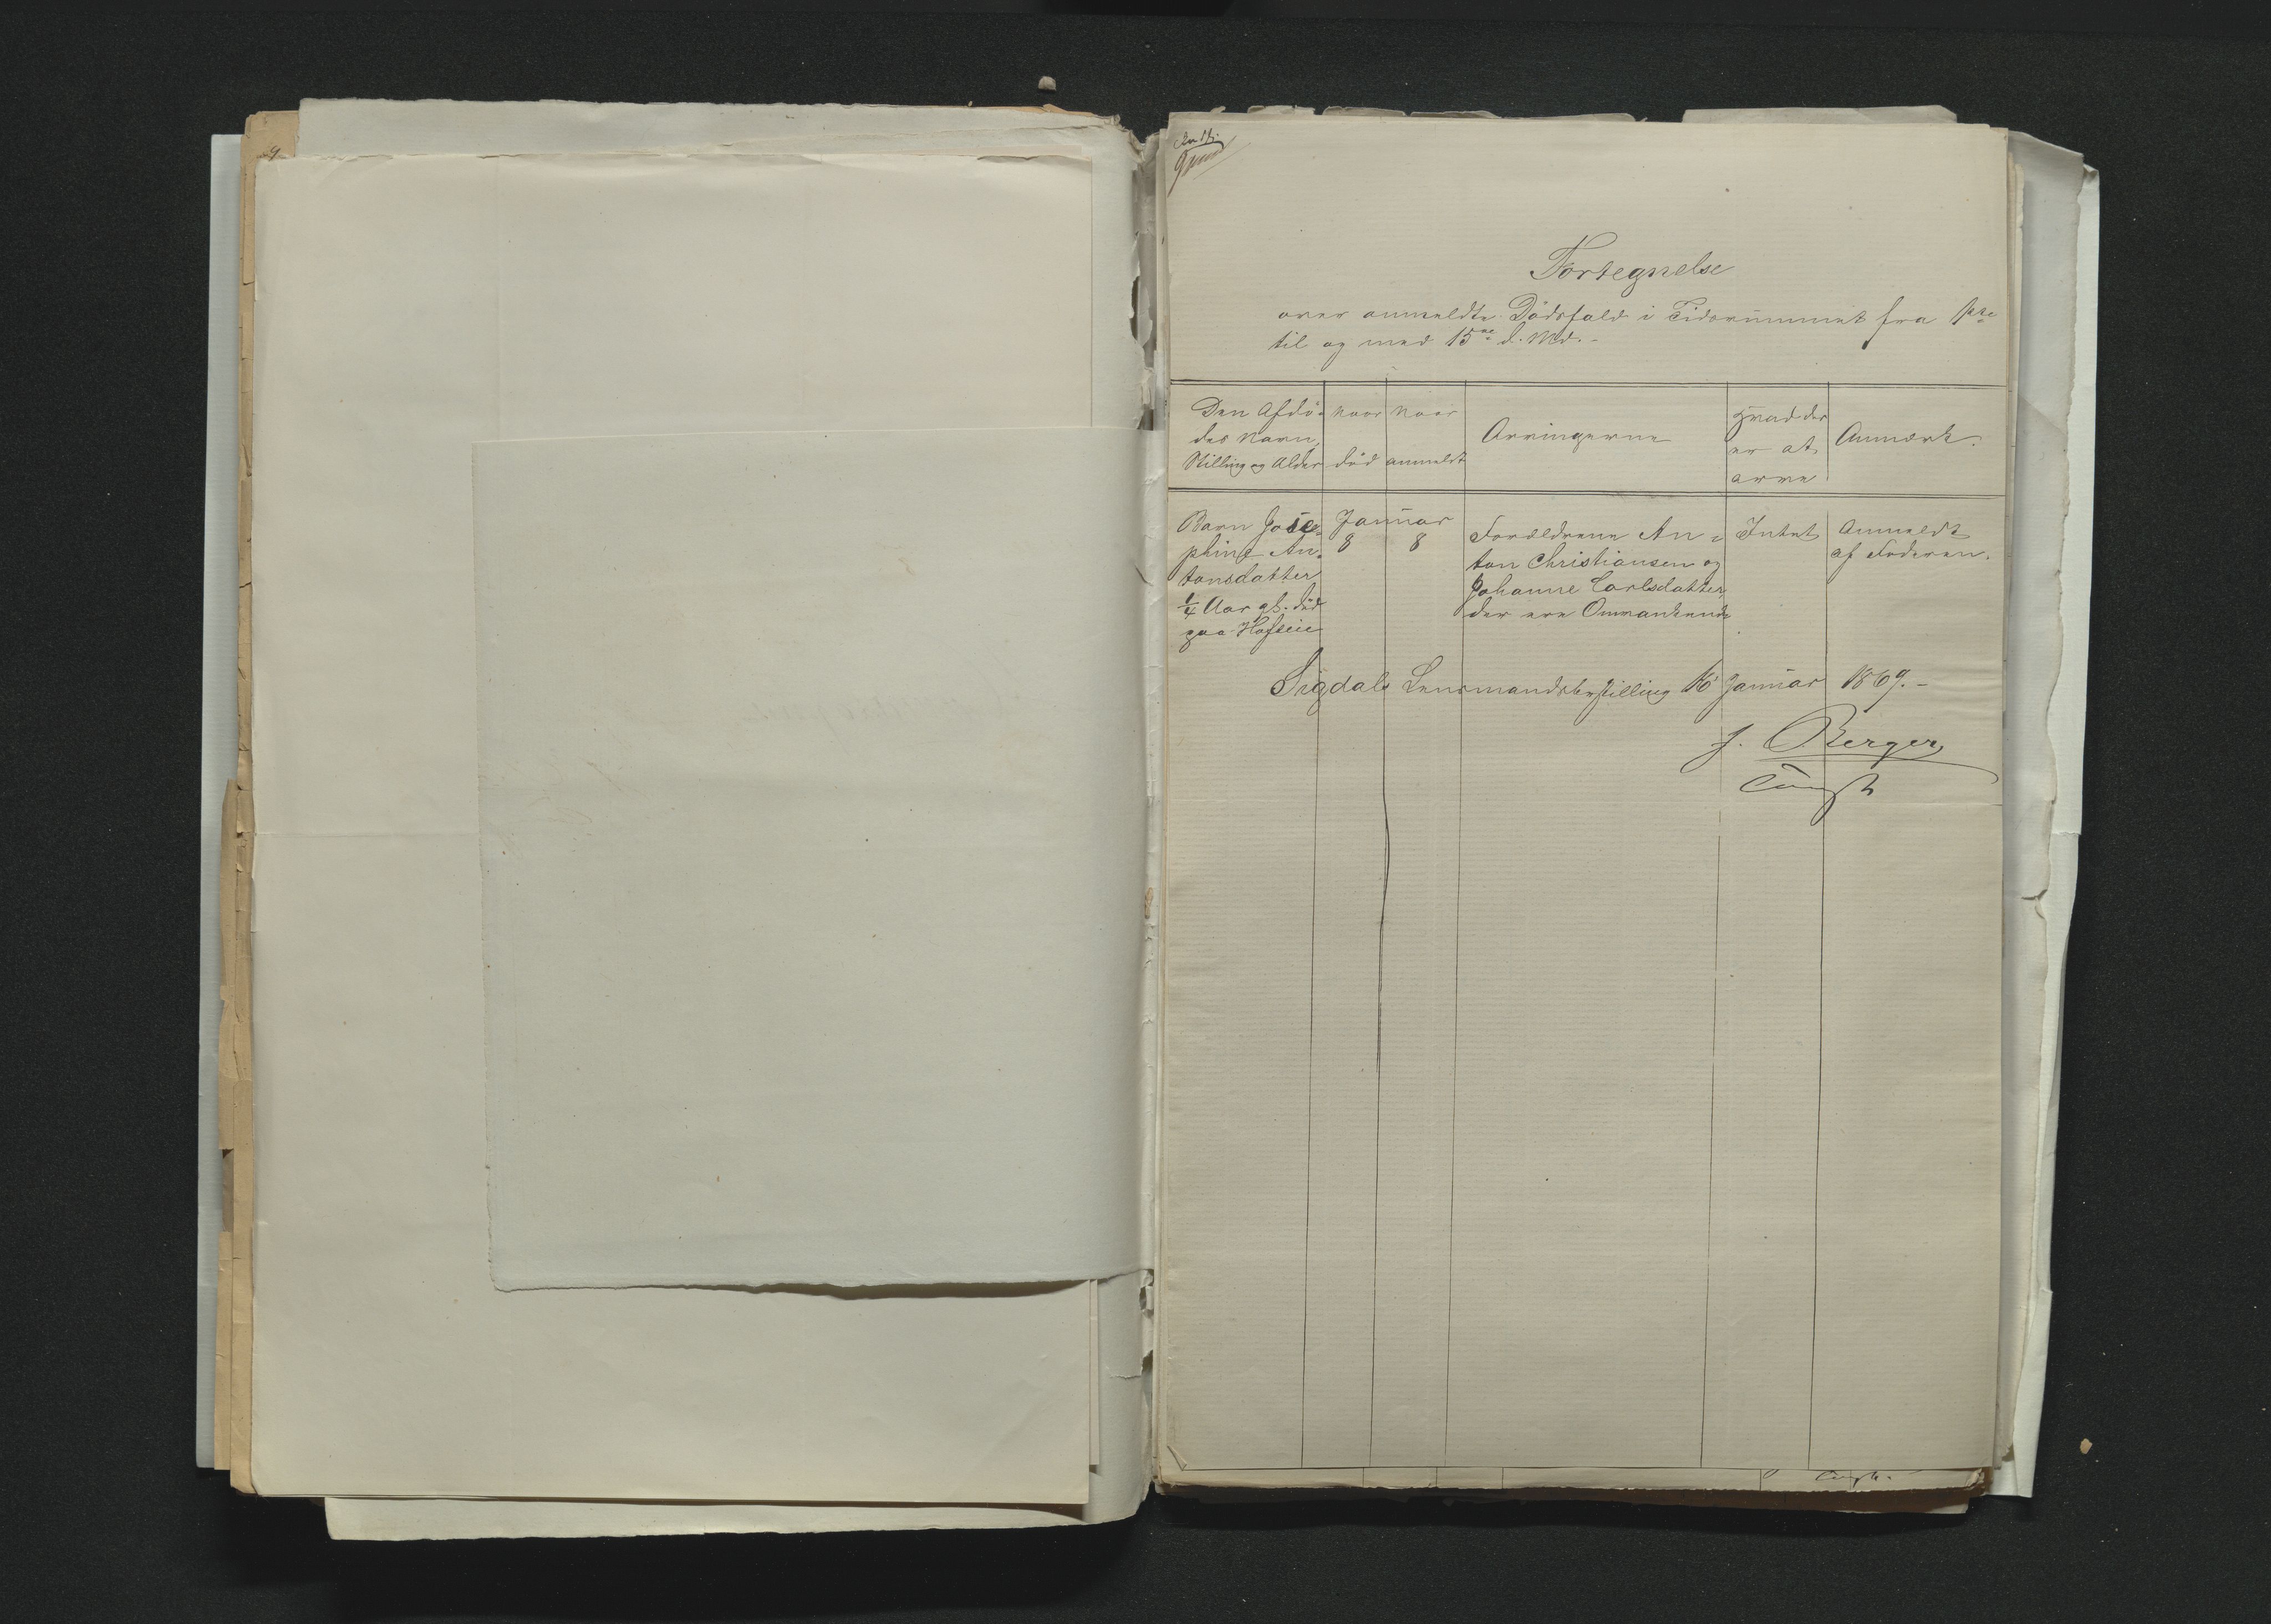 Fortegnelse
over anmeldte Dödsfald i Tidsrummet fra 1ste
til og med 15de d. Md. -
Den Afdö-
des Navn,
Stilling og Alder
naar
död
naar
anmeldt
Arvingerne
Hvad der
er at
arve
Anmærk.
Barn Jose-
phine An-
tonsdatter
1/4 Aar gl. död
paa Hofseie
Januar
8
8
Forældrene An-
ton Christiansen og
Johanne Carlsdatter,
der ere Omvankende
Intet
Anmeldt
af Faderen.
Sigdals Lensmandsbestilling 16 Januar 1869. -
J. Berger
Const